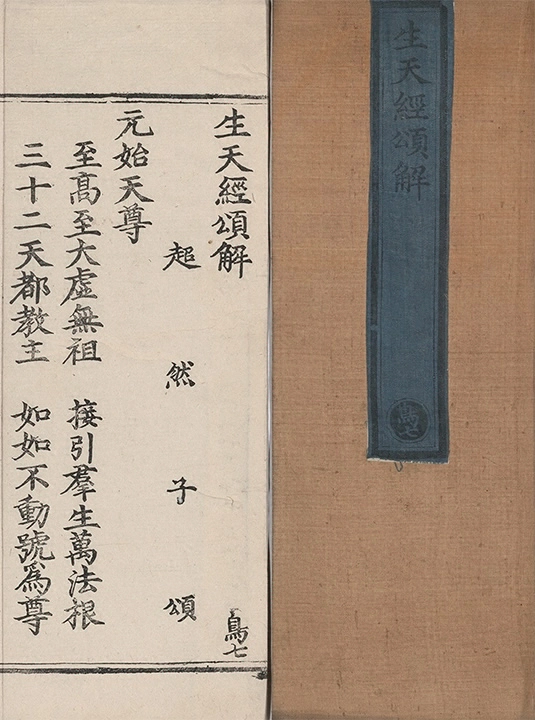 生天經頌解
鳥七
生天經頌解
鳥七
超然子頌
元始天尊
至高至大虛無祖 接引羣生萬法根
三十二天都教主 如如不動號爲尊